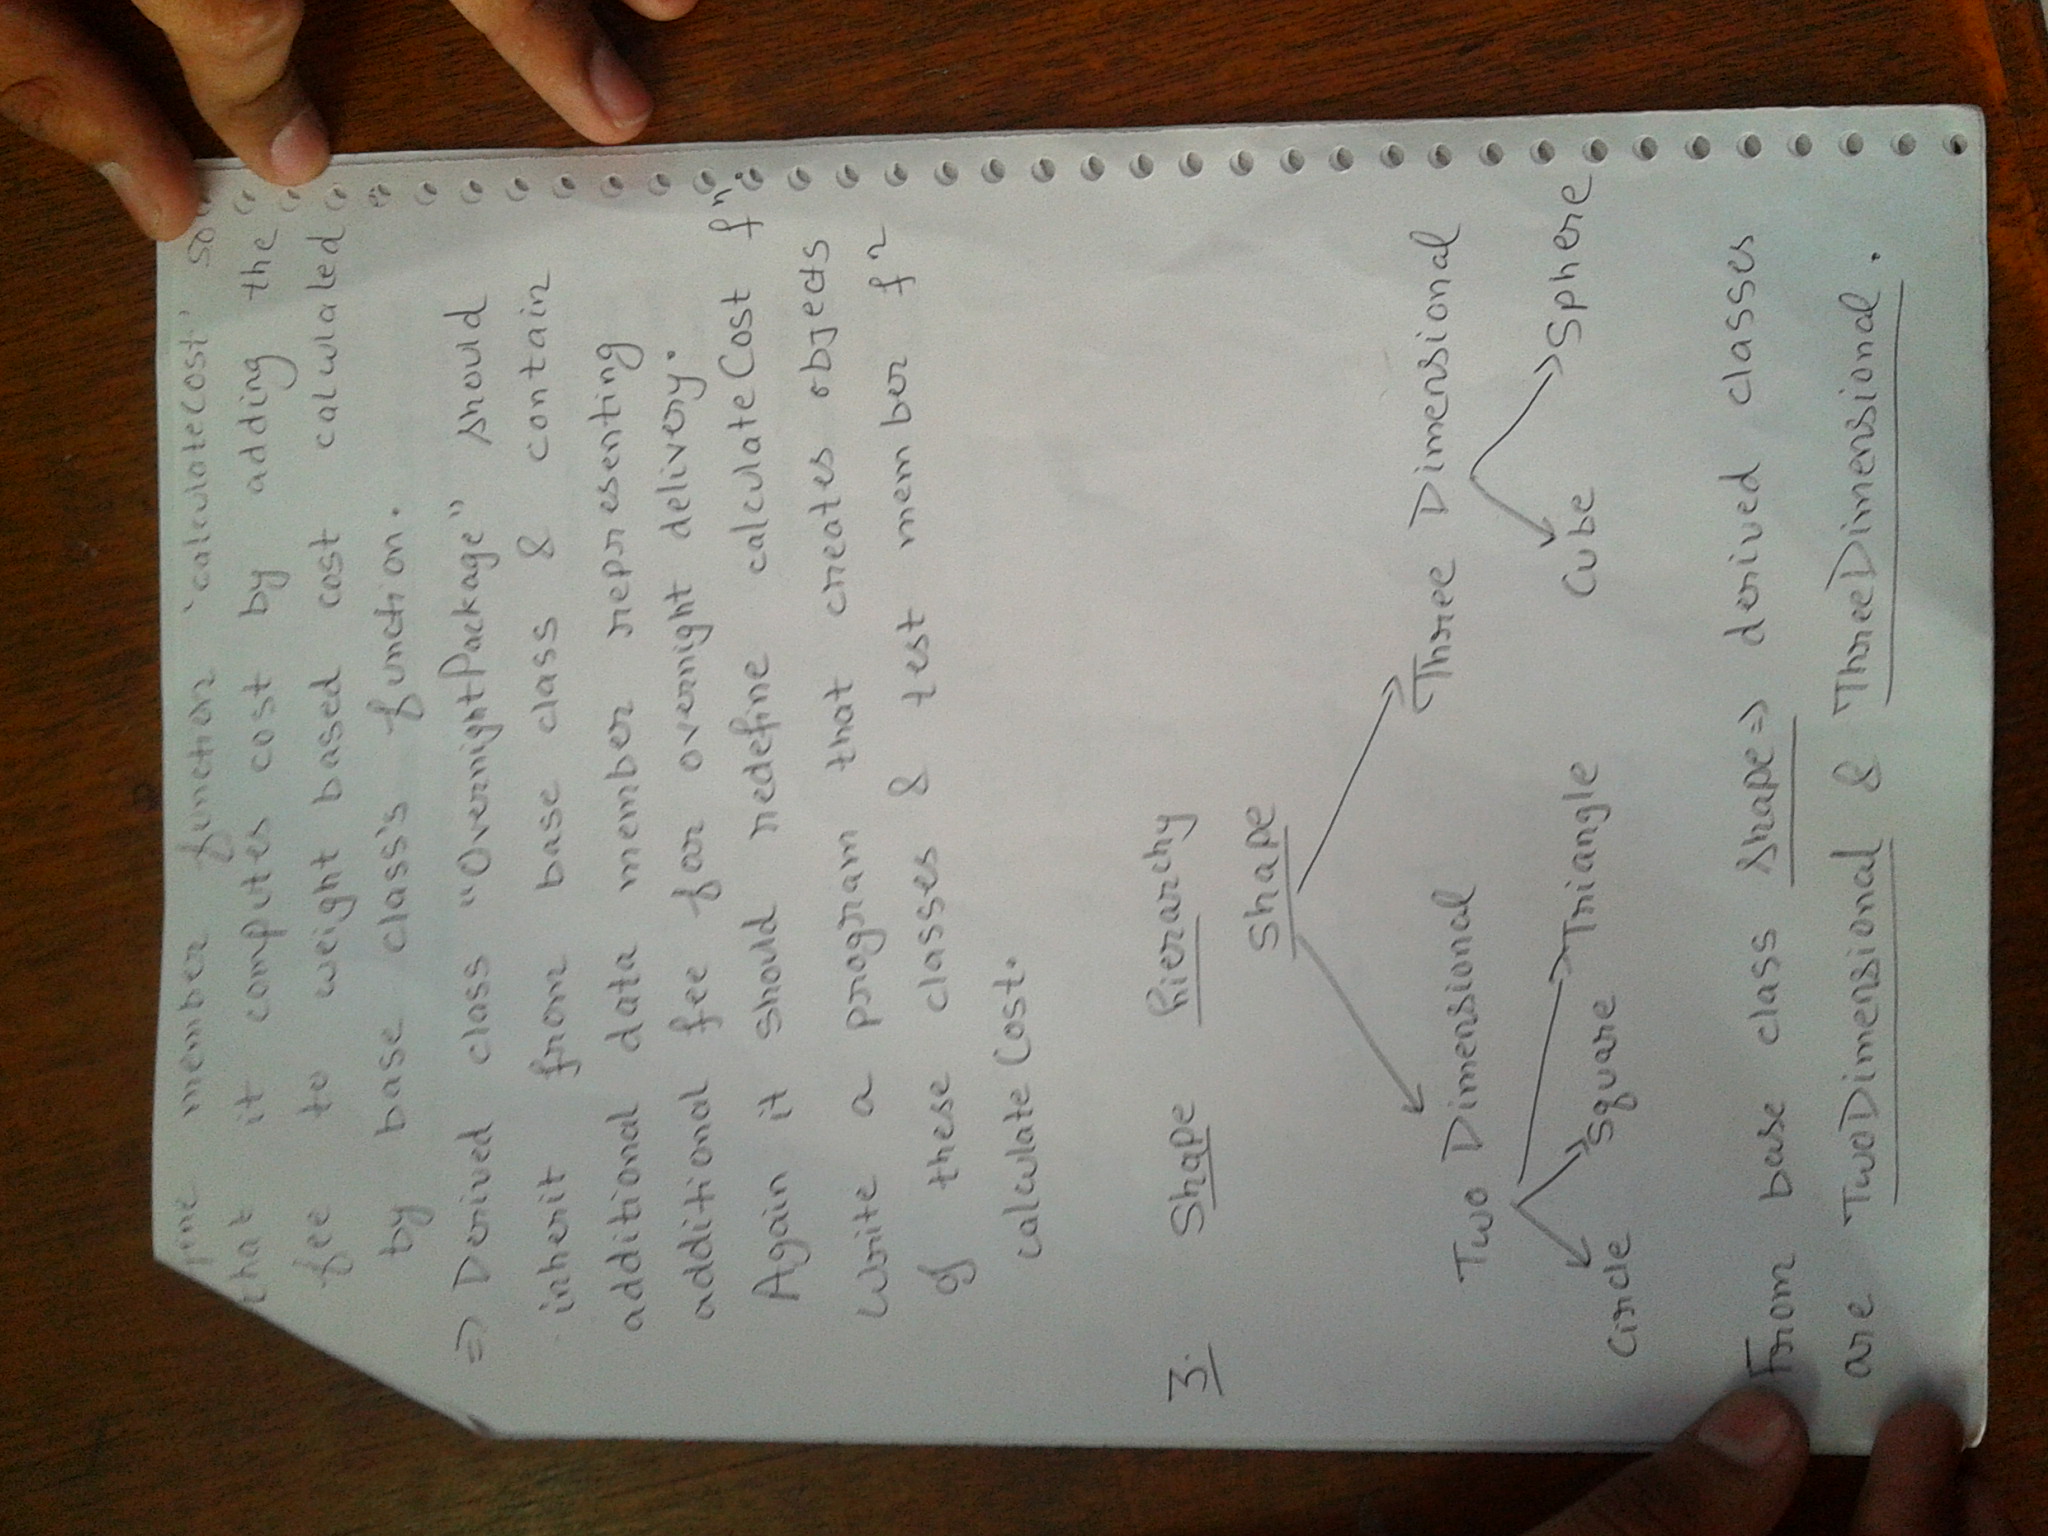 member function 'calculateCost' so
that it computes cost by adding the
fee to weight based cost calculated
by base class's function.
⇒ Derived class "OvernightPackage" should
inherit from base class & contain
additional data member representing
additional fee for overnight delivery.
Again it should redefine calculateCost fn.
Write a program that creates objects
of these classes & test member fn
calculateCost.
3. Shape hierarchy
Shape
Two Dimensional Three Dimensional
Circle Square Triangle Cube Sphere
From base class Shape ⇒ derived classes
are TwoDimensional & ThreeDimensional.